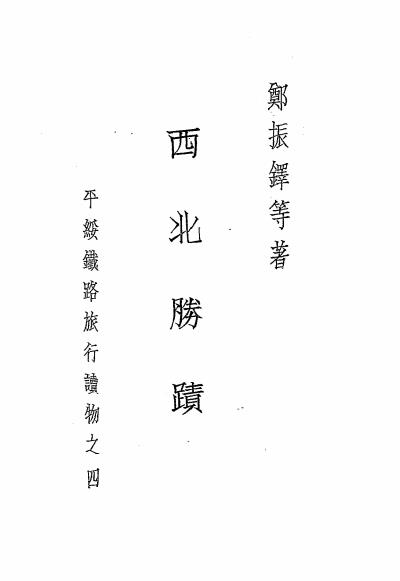 鄭振鐸等著
西北勝蹟
平綏鐵路旅行讀物之四